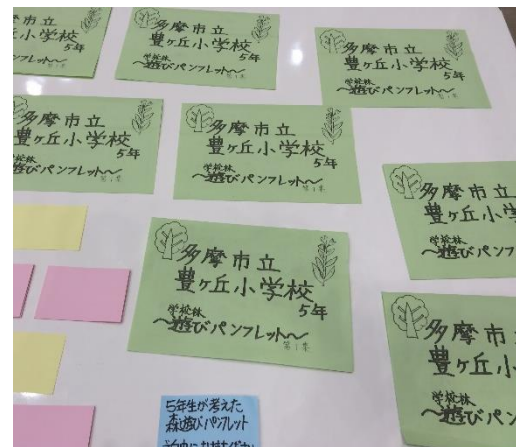 多摩市立
豊ヶ丘小学校
5年
学校林
〜遊びパンフレット〜
第1集
多摩市立
豊ヶ丘小学校
5年
学校林
〜遊びパンフレット〜
第1集
豊ヶ丘小学校
5年
学校林
〜遊びパンフレット〜
多摩市立
豊ヶ丘小学校
5年
学校林
〜遊びパンフレット〜
第1集
多摩市立
豊ヶ丘小学校
5年
学校林
〜遊びパンフレット〜
第1集
多摩市立
豊ヶ丘小
学校林
〜遊びパンフ
多摩市立
豊ヶ丘小学校
5年
学校林
〜遊びパンフレット〜
第1集
多摩市
豊ヶ丘小
学校林
〜遊びパン
5年生が考えた
森遊びパンフレット